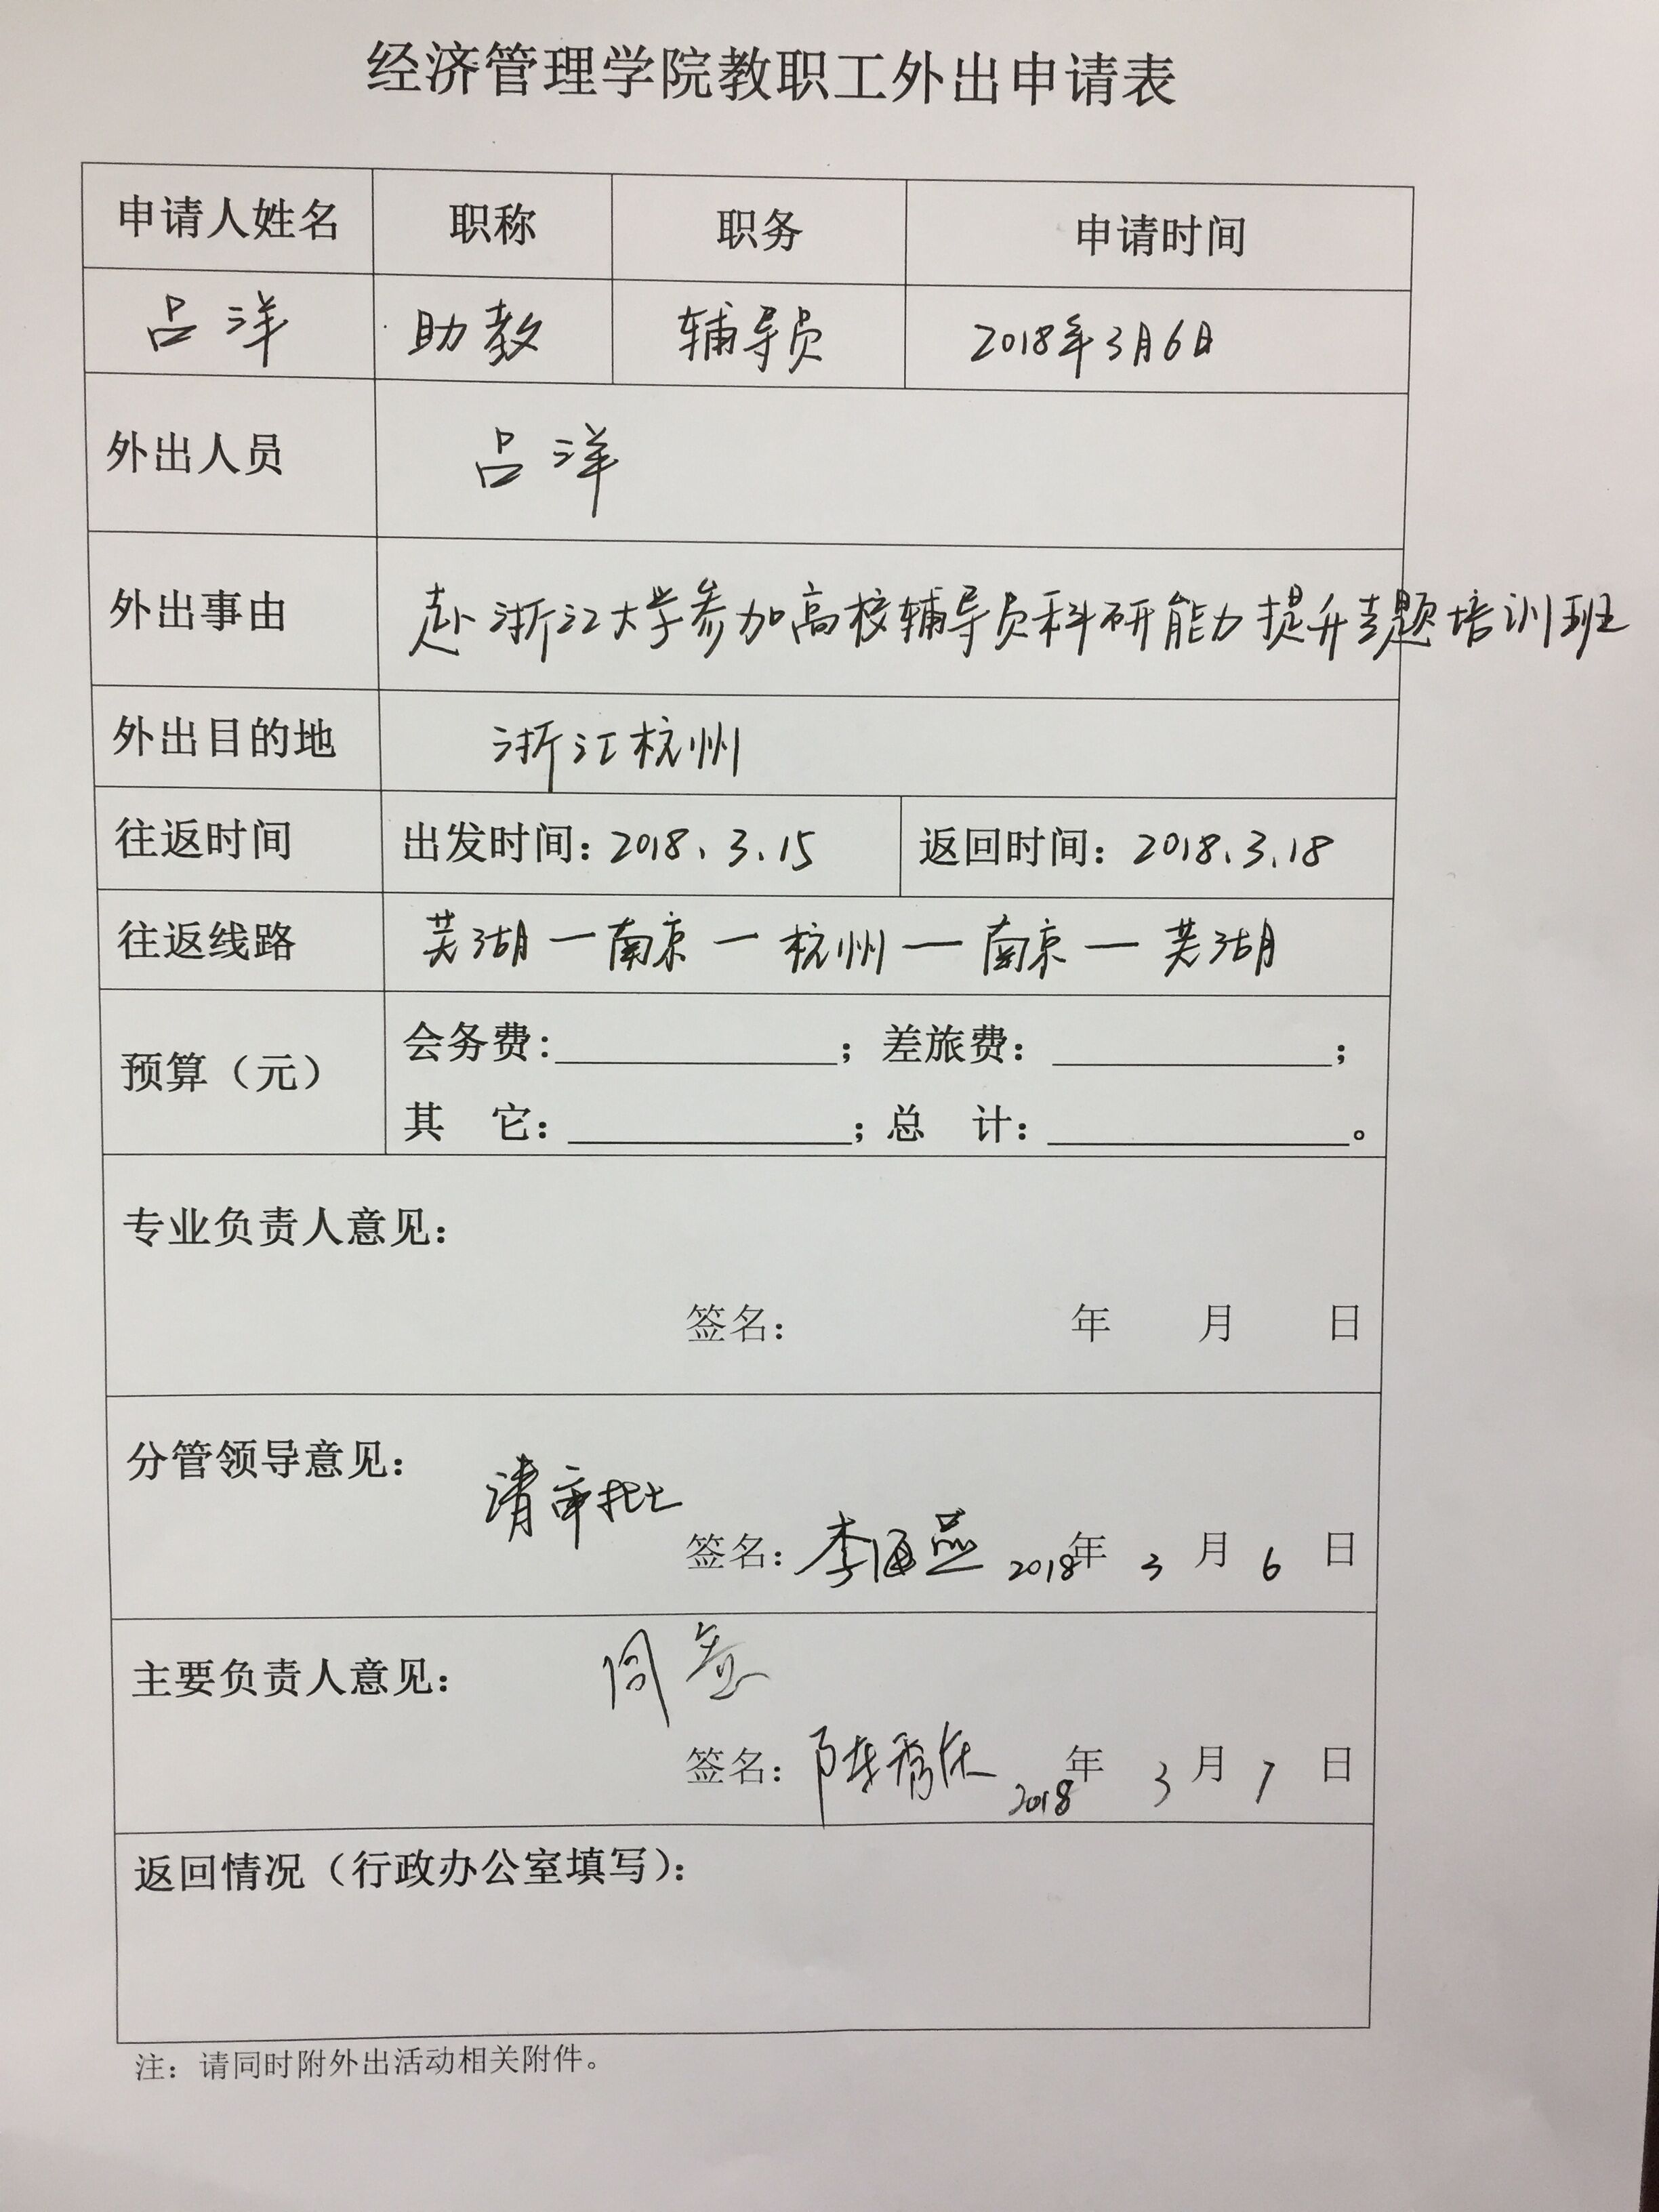 经济管理学院教职工外出申请表
申请人姓名 职称 职务 申请时间
吕洋 助教 辅导员 2018年3月6日
外出人员 吕洋
外出事由 赴浙江大学参加高校辅导员科研能力提升专题培训班
外出目的地 浙江杭州
往返时间 出发时间：2018.3.15 返回时间：2018.3.18
往返线路 芜湖—南京—杭州—南京—芜湖
预算（元） 会务费:____________；差旅费：____________；
其 它：____________；总 计：____________。
专业负责人意见：
签名： 年 月 日
分管领导意见： 请审批
签名：李海燕 2018年 3 月 6 日
主要负责人意见： 同意
签名：陈秀 2018年 3 月 7 日
返回情况（行政办公室填写）：
注：请同时附外出活动相关附件。